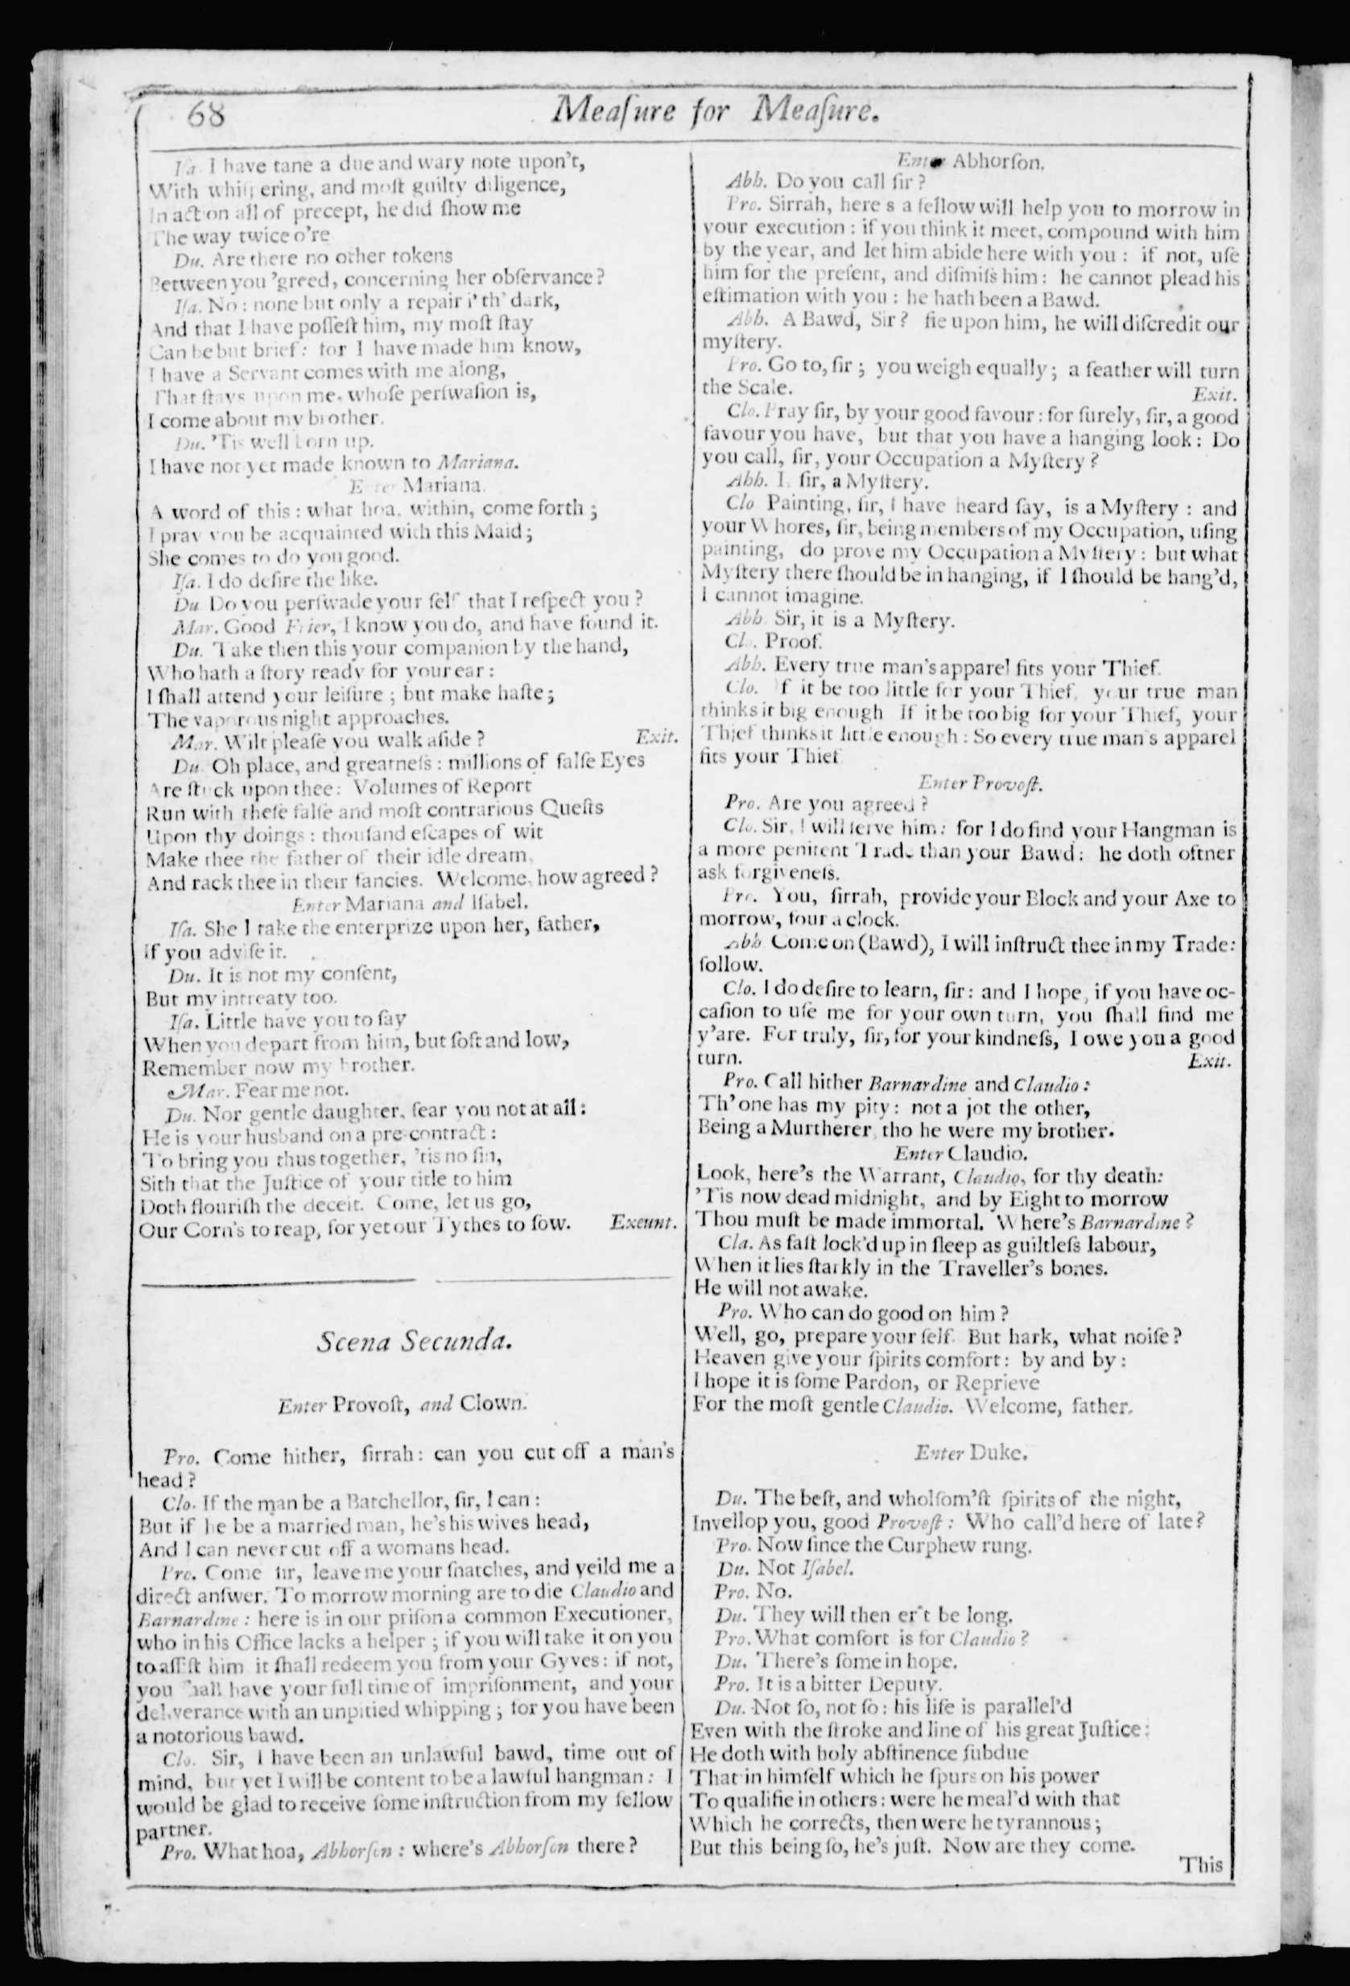 68
Meaſure for Meaſure.
Iſa. I have tane a due and wary note upon't,
With whiſpering, and moſt guilty diligence,
In action all of precept, he did ſhow me
The way twice o're
Du. Are there no other tokens
Between you 'greed, concerning her obſervance?
Iſa. No: none but only a repair i' th' dark,
And that I have poſſeſt him, my moſt ſtay
Can be but brief: for I have made him know,
I have a Servant comes with me along,
That ſtays upon me, whoſe perſwaſion is,
I come about my brother.
Du. 'Tis well born up.
I have not yet made known to Mariana.
Enter Mariana.
A word of this: what hoa, within, come forth;
I pray you be acquainted with this Maid;
She comes to do you good.
Iſa. I do deſire the like.
Du. Do you perſwade your ſelf that I reſpect you?
Mar. Good Frier, I know you do, and have found it.
Du. Take then this your companion by the hand,
Who hath a ſtory ready for your ear:
I ſhall attend your leiſure; but make haſte;
The vaporous night approaches.
Mar. Wilt pleaſe you walk aſide? Exit.
Du. Oh place, and greatneſs: millions of falſe Eyes
Are ſtuck upon thee: Volumes of Report
Run with theſe falſe and moſt contrarious Queſts
Upon thy doings: thouſand eſcapes of wit
Make thee the father of their idle dream,
And rack thee in their fancies. Welcome, how agreed?
Enter Mariana and Iſabel.
Iſa. She'l take the enterprize upon her, father,
If you adviſe it.
Du. It is not my conſent,
But my intreaty too.
Iſa. Little have you to ſay
When you depart from him, but ſoft and low,
Remember now my brother.
Mar. Fear me not.
Du. Nor gentle daughter, fear you not at all:
He is your husband on a pre-contract:
To bring you thus together, 'tis no ſin,
Sith that the Juſtice of your title to him
Doth flouriſh the deceit. Come, let us go,
Our Corn's to reap, for yet our Tythes to ſow. Exeunt.
Scena Secunda.
Enter Provoſt, and Clown.
Pro. Come hither, ſirrah: can you cut off a man's
head?
Clo. If the man be a Batchellor, ſir, I can:
But if he be a married man, he's his wives head,
And I can never cut off a womans head.
Pro. Come ſir, leave me your ſnatches, and yeild me a
direct anſwer. To morrow morning are to die Claudio and
Barnardine: here is in our priſon a common Executioner,
who in his Office lacks a helper; if you will take it on you
to aſſiſt him it ſhall redeem you from your Gyves: if not,
you ſhall have your full time of impriſonment, and your
deliverance with an unpitied whipping; for you have been
a notorious bawd.
Clo. Sir, I have been an unlawful bawd, time out of
mind, but yet I will be content to be a lawful hangman: I
would be glad to receive ſome inſtruction from my fellow
partner.
Pro. What hoa, Abhorſon: where's Abhorſon there?
Enter Abhorſon.
Abh. Do you call ſir?
Pro. Sirrah, here's a fellow will help you to morrow in
your execution: if you think it meet, compound with him
by the year, and let him abide here with you: if not, uſe
him for the preſent, and diſmiſs him: he cannot plead his
eſtimation with you: he hath been a Bawd.
Abh. A Bawd, Sir? fie upon him, he will diſcredit our
myſtery.
Pro. Go to, ſir; you weigh equally; a feather will turn
the Scale. Exit.
Clo. Pray ſir, by your good favour: for ſurely, ſir, a good
favour you have, but that you have a hanging look: Do
you call, ſir, your Occupation a Myſtery?
Abh. I, ſir, a Myſtery.
Clo Painting, ſir, I have heard ſay, is a Myſtery: and
your Whores, ſir, being members of my Occupation, uſing
painting, do prove my Occupation a Myſtery: but what
Myſtery there ſhould be in hanging, if I ſhould be hang'd,
I cannot imagine.
Abh. Sir, it is a Myſtery.
Clo. Proof.
Abh. Every true man's apparel fits your Thief.
Clo. If it be too little for your Thief, your true man
thinks it big enough If it be too big for your Thief, your
Thief thinks it little enough: So every true man's apparel
fits your Thief
Enter Provoſt.
Pro. Are you agreed?
Clo. Sir, I will ſerve him: for I do find your Hangman is
a more penitent Trade than your Bawd: he doth oftner
ask forgiveneſs.
Pro. You, ſirrah, provide your Block and your Axe to
morrow, four a clock.
Abh Come on (Bawd), I will inſtruct thee in my Trade:
follow.
Clo. I do deſire to learn, ſir: and I hope, if you have oc-
caſion to uſe me for your own turn, you ſhall find me
y'are. For truly, ſir, for your kindneſs, I owe you a good
turn. Exit.
Pro. Call hither Barnardine and Claudio:
Th'one has my pity: not a jot the other,
Being a Murtherer, tho he were my brother.
Enter Claudio.
Look, here's the Warrant, Claudio, for thy death:
'Tis now dead midnight, and by Eight to morrow
Thou muſt be made immortal. Where's Barnardine?
Cla. As faſt lock'd up in ſleep as guiltleſs labour,
When it lies ſtarkly in the Traveller's bones.
He will not awake.
Pro. Who can do good on him?
Well, go, prepare your ſelf. But hark, what noiſe?
Heaven give your ſpirits comfort: by and by:
I hope it is ſome Pardon, or Reprieve
For the moſt gentle Claudio. Welcome, father.
Enter Duke.
Du. The beſt, and wholſom'ſt ſpirits of the night,
Invellop you, good Provoſt: Who call'd here of late?
Pro. Now ſince the Curphew rung.
Du. Not Iſabel.
Pro. No.
Du. They will then er't be long.
Pro. What comfort is for Claudio?
Du. There's ſome in hope.
Pro. It is a bitter Deputy.
Du. Not ſo, not ſo: his life is parallel'd
Even with the ſtroke and line of his great Juſtice:
He doth with holy abſtinence ſubdue
That in himſelf which he ſpurs on his power
To qualifie in others: were he meal'd with that
Which he corrects, then were he tyrannous;
But this being ſo, he's juſt. Now are they come.
This